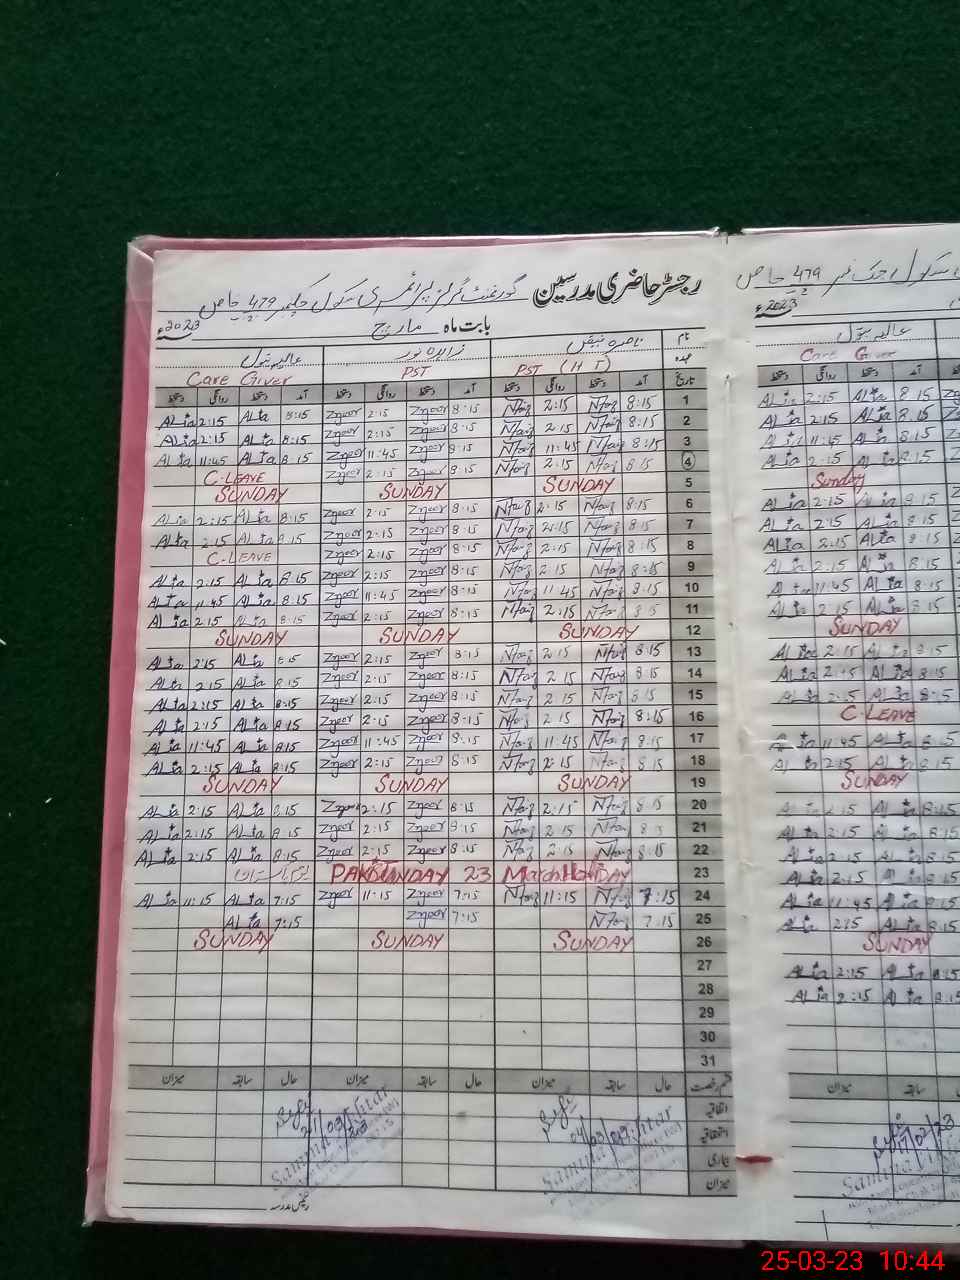 رجسٹر حاضری مدرسین گورنمنٹ گرلز پرائمری سکول چک نمبر 479 ج ب خاص
بابت ماہ مارچ 2023ء
نام ناصرہ فیض زاہدہ نور عالیہ بتول
عہدہ PST (H T) PST Care Giver
تاریخ آمد دستخط روانگی دستخط آمد دستخط روانگی دستخط آمد دستخط روانگی دستخط
ALia 2:15 ALia 8:15 Znoor 2:15 Znoor 8:15 Nfaiz 2:15 Nfaiz 8:15 1
ALia 2:15 ALia 8:15 Znoor 2:15 Znoor 8:15 Nfaiz 2:15 Nfaiz 8:15 2
ALia 11:45 ALia 8:15 Znoor 11:45 Znoor 8:15 Nfaiz 11:45 Nfaiz 8:15 3
C-LEAVE Znoor 2:15 Znoor 8:15 Nfaiz 2:15 Nfaiz 8:15 4
SUNDAY SUNDAY SUNDAY 5
ALia 2:15 ALia 8:15 Znoor 2:15 Znoor 8:15 Nfaiz 2:15 Nfaiz 8:15 6
ALia 2:15 ALia 8:15 Znoor 2:15 Znoor 8:15 Nfaiz 2:15 Nfaiz 8:15 7
C-LEAVE Znoor 2:15 Znoor 8:15 Nfaiz 2:15 Nfaiz 8:15 8
ALia 2:15 ALia 8:15 Znoor 2:15 Znoor 8:15 Nfaiz 2:15 Nfaiz 8:15 9
ALia 11:45 ALia 8:15 Znoor 11:45 Znoor 8:15 Nfaiz 11:45 Nfaiz 8:15 10
ALia 2:15 ALia 8:15 Znoor 2:15 Znoor 8:15 Nfaiz 2:15 Nfaiz 8:15 11
SUNDAY SUNDAY SUNDAY 12
ALia 2:15 ALia 8:15 Znoor 2:15 Znoor 8:15 Nfaiz 2:15 Nfaiz 8:15 13
ALia 2:15 ALia 8:15 Znoor 2:15 Znoor 8:15 Nfaiz 2:15 Nfaiz 8:15 14
ALia 2:15 ALia 8:15 Znoor 2:15 Znoor 8:15 Nfaiz 2:15 Nfaiz 8:15 15
ALia 2:15 ALia 8:15 Znoor 2:15 Znoor 8:15 Nfaiz 2:15 Nfaiz 8:15 16
ALia 11:45 ALia 8:15 Znoor 11:45 Znoor 8:15 Nfaiz 11:45 Nfaiz 8:15 17
ALia 2:15 ALia 8:15 Znoor 2:15 Znoor 8:15 Nfaiz 2:15 Nfaiz 8:15 18
SUNDAY SUNDAY SUNDAY 19
ALia 2:15 ALia 8:15 Znoor 2:15 Znoor 8:15 Nfaiz 2:15 Nfaiz 8:15 20
ALia 2:15 ALia 8:15 Znoor 2:15 Znoor 8:15 Nfaiz 2:15 Nfaiz 8:15 21
ALia 2:15 ALia 8:15 Znoor 2:15 Znoor 8:15 Nfaiz 2:15 Nfaiz 8:15 22
یوم پاکستان PAKISTAN DAY 23 March HoliDAY 23
ALia 11:15 ALia 7:15 Znoor 11:15 Znoor 7:15 Nfaiz 11:15 Nfaiz 7:15 24
ALia 7:15 Znoor 7:15 Nfaiz 7:15 25
SUNDAY SUNDAY SUNDAY 26
27
28
29
30
31
قسم رخصت حال سابقہ میزان حال سابقہ میزان حال سابقہ میزان
اتفاقیہ
استحقاقیہ
بیماری
میزان
رئیس مدرسہ
2023ء
عالیہ بتول
Care Giver
دستخط روانگی دستخط آمد
ALia 2:15 ALia 8:15
ALia 2:15 ALia 8:15
ALia 11:45 ALia 8:15
ALia 2:15 ALia 8:15
Sunday
ALia 2:15 ALia 8:15
ALia 2:15 ALia 8:15
ALia 2:15 ALia 8:15
ALia 2:15 ALia 8:15
ALia 11:45 ALia 8:15
ALia 2:15 ALia 8:15
SUNDAY
ALia 2:15 ALia 8:15
ALia 2:15 ALia 8:15
ALia 2:15 ALia 8:15
C-LEAVE
ALia 11:45 ALia 8:15
ALia 2:15 ALia 8:15
SUNDAY
ALia 2:15 ALia 8:15
ALia 2:15 ALia 8:15
ALia 2:15 ALia 8:15
ALia 2:15 ALia 8:15
ALia 11:45 ALia 8:15
ALia 2:15 ALia 8:15
SUNDAY
ALia 2:15 ALia 8:15
ALia 2:15 ALia 8:15
میزان سابقہ
25-03-23 10:44